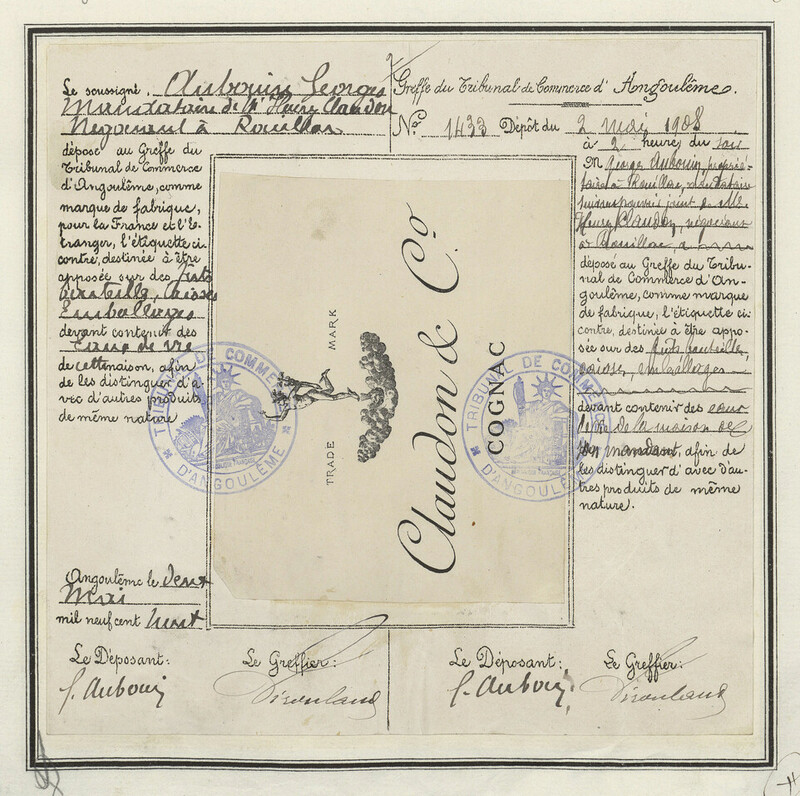 Le soussigné, Aubouin Georges
Mandataire de Mr Henry Claudon
Négociant à Rouillac
dépose au Greffe du
Tribunal de Commerce
d'Angoulême, comme
marque de fabrique,
pour la France et l'é-
tranger, l'étiquette ci-
contre, destinée à être
apposée sur des fûts
bouteilles, caisses
Emballages
devant contenir des
Eaux de vie
de cette maison, afin
de les distinguer d'a-
vec d'autres produits
de même nature
Angoulême le deux
Mai
mil neuf cent huit
Le Déposant:
G. Aubouin
Le Greffier:
TRADE MARK
Claudon & Co
COGNAC
TRIBUNAL DE COMMERCE
D'ANGOULÊME
TRIBUNAL DE COMMERCE
D'ANGOULÊME
Greffe du Tribunal de Commerce d'Angoulême.
No. 1433 Dépôt du 2 mai 1908
à 2 heures du soir
M Georges Aubouin, proprié-
taire à Rouillac, mandataire
suivant pouvoir joint de M.
Henry Claudon, négociant
à Rouillac, a
déposé au Greffe du Tribu-
nal de Commerce d'An-
goulême, comme marque
de fabrique, l'étiquette ci-
contre, destinée à être appo-
sée sur des fûts, bouteilles,
caisses, emballages
devant contenir des eaux
de vie de la maison de
son mandant, afin de
les distinguer d'avec d'au-
tres produits de même
nature.
Le Déposant:
G. Aubouin
Le Greffier: